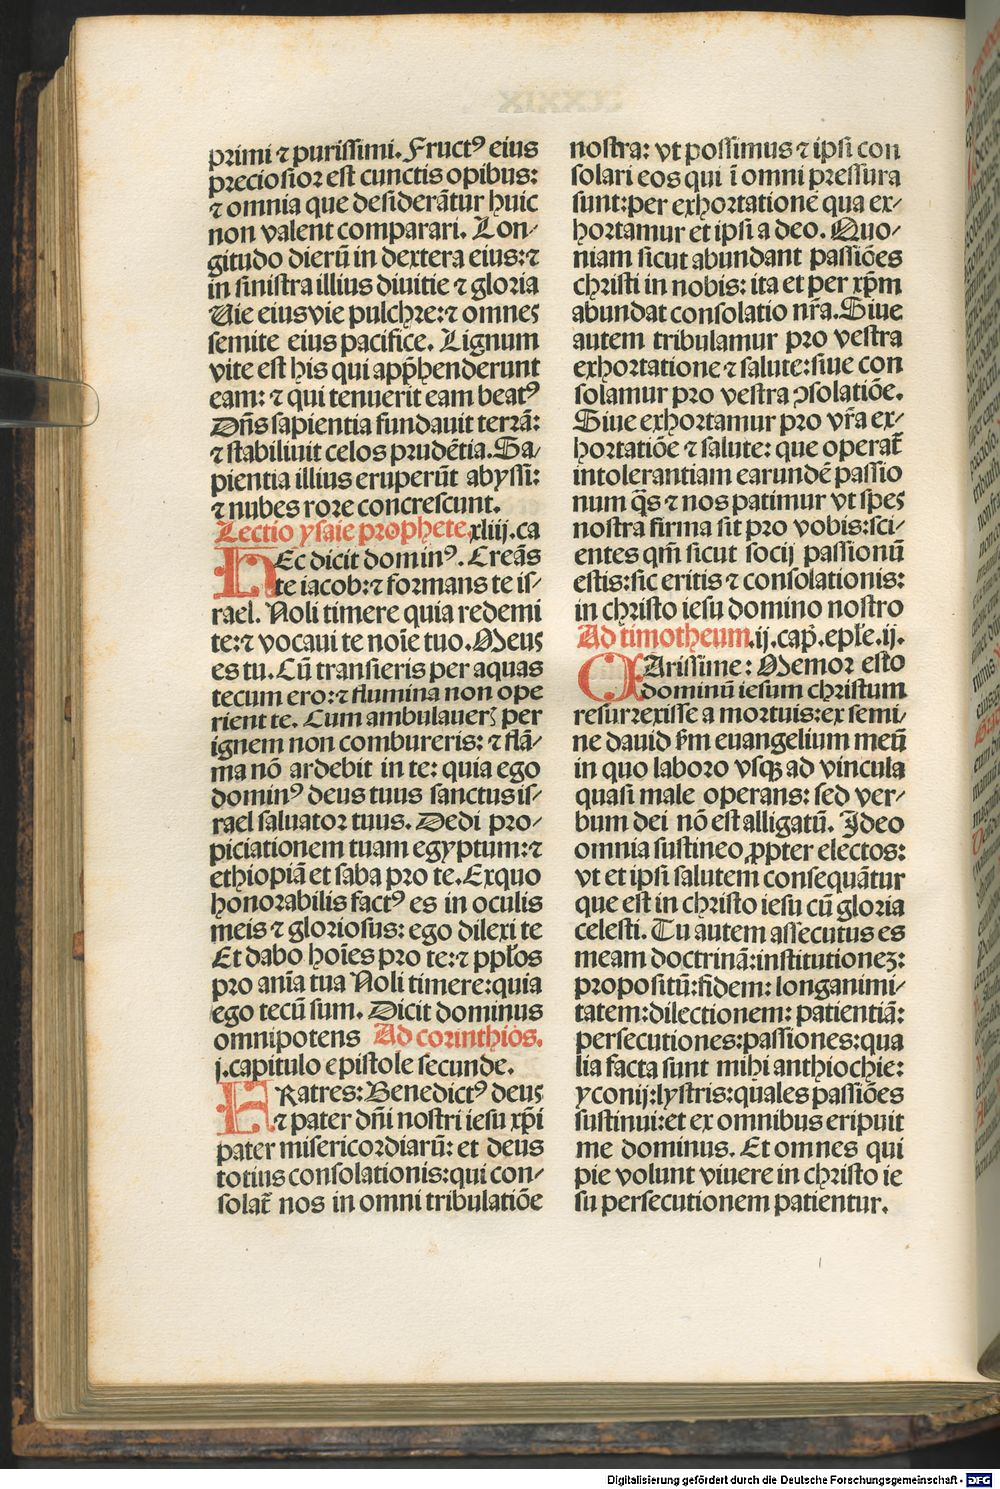 primi ⁊ purissimi. Fructꝰ eius
preciosior est cunctis opibus:
⁊ omnia que desiderātur huic
non valent comparari. Lon-
gitudo dierū in dextera eius:⁊
in sinistra illius diuitie ⁊ gloria
Uie eius vie pulchre:⁊ omnes
semite eius pacifice. Lignum
vite est his qui app̄henderunt
eam: ⁊ qui tenuerit eam beatꝰ
Dn̄s sapientia fundauit terrā:
⁊ stabiliuit celos prudētia. Sa-
pientia illius eruperūt abyssi:
⁊ nubes rore concrescunt.
Lectio ysaie prophete. xliij. ca
HEc dicit dominꝰ. Creās
te iacob:⁊ formans te is-
rael. Noli timere quia redemi
te:⁊ vocaui te noīe tuo. Meus
es tu. Cū transieris per aquas
tecum ero:⁊ flumina non ope
rient te. Cum ambulauerꝫ per
ignem non combureris: ⁊ flā-
ma nō ardebit in te: quia ego
dominꝰ deus tuus sanctus is-
rael saluator tuus. Dedi pro-
piciationem tuam egyptum:⁊
ethiopiā et saba pro te. Ex quo
honorabilis factꝰ es in oculis
meis ⁊ gloriosus: ego dilexi te
Et dabo hoīes pro te:⁊ pp̄los
pro anīa tua Noli timere:quia
ego tecū sum. Dicit dominus
omnipotens Ad corinthios.
j. capitulo epistole secunde.
FRatres: Benedictꝰ deus
⁊ pater dn̄i nostri iesu xp̄i
pater misericordiarū: et deus
totius consolationis:qui con-
solat̄ nos in omni tribulatiōe
nostra: vt possimus ⁊ ipsi con
solari eos qui ī omni pressura
sunt:per exhortationē qua ex-
hortamur et ipsi a deo. Quo-
niam sicut abundant passiōes
christi in nobis: ita et per xp̄m
abundat consolatio nr̄a. Siue
autem tribulamur pro vestra
exhortatione ⁊ salute:siue con
solamur pro vestra ꝯsolatiōe.
Siue exhortamur pro vr̄a ex-
hortatiōe ⁊ salute: que operat̄
intolerantiam earundē passio
num q̄s ⁊ nos patimur vt spes
nostra firma sit pro vobis:sci-
entes qm̄ sicut socij passionū
estis:sic eritis ⁊ consolationis:
in christo iesu domino nostro
Ad timotheum. ij. cap̄. ep̄le. ij.
CArissime: Memor esto
dominū iesum christum
resurrexisse a mortuis:ex semi-
ne dauid ẜm euangelium meū
in quo laboro vsqꝫ ad vincula
quasi male operans: sed ver-
bum dei nō est alligatū. Ideo
omnia sustineo ꝓpter electos:
vt et ipsi salutem consequātur
que est in christo iesu cū gloria
celesti. Tu autem assecutus es
meam doctrinā:institutioneꝫ:
propositū:fidem: longanimi-
tatem:dilectionem: patientiā:
persecutiones:passiones:qua
lia facta sunt mihi anthiochie:
yconij:lystris:quales passiōes
sustinui:et ex omnibus eripuit
me dominus. Et omnes qui
pie volunt viuere in christo ie
su persecutionem patientur.
Digitalisierung gefördert durch die Deutsche Forschungsgemeinschaft - DFG